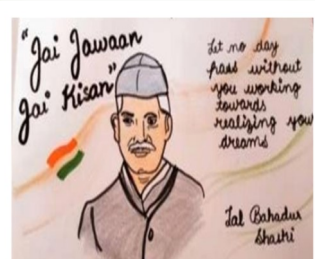 "Jai Jawaan
Jai Kisan"
Let no day
pass without
you working
towards
realizing your
dreams
Lal Bahadur
Shastri